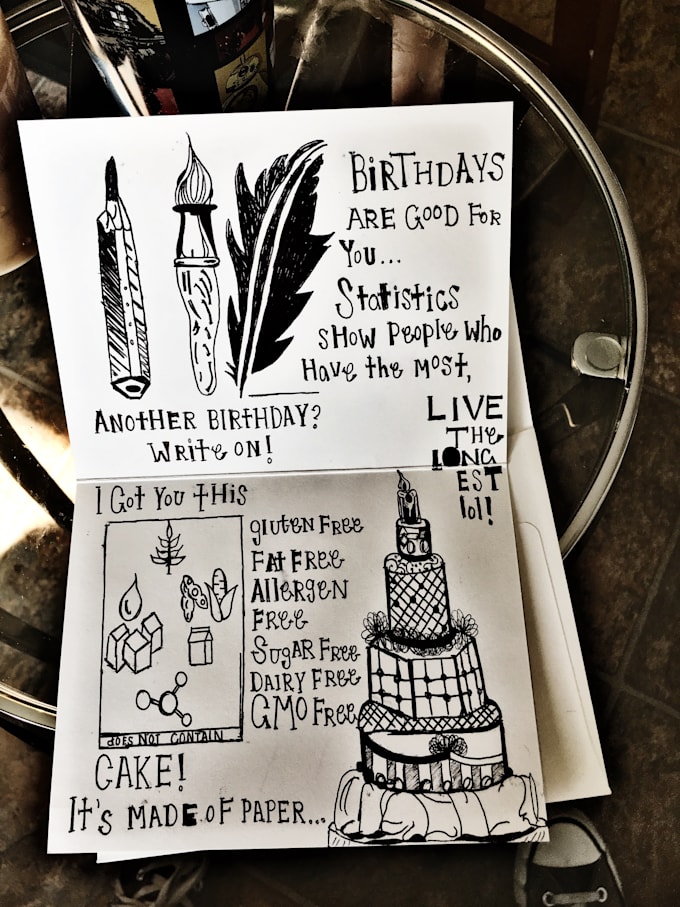 BiRTHDAYS
ARE GOOD FOR
You...
Statistics
sHow People who
Have the Most,
LIVE
The
LONG
EST
lol!
ANOTHER BIRTHDAY?
Write on!
I Got You tHis
gluten Free
FAt Free
Allergen
Free
SugAR Free
DAIRY Free
GMO Free
does Not contain
CAKE!
It's MADE OF PAPER...